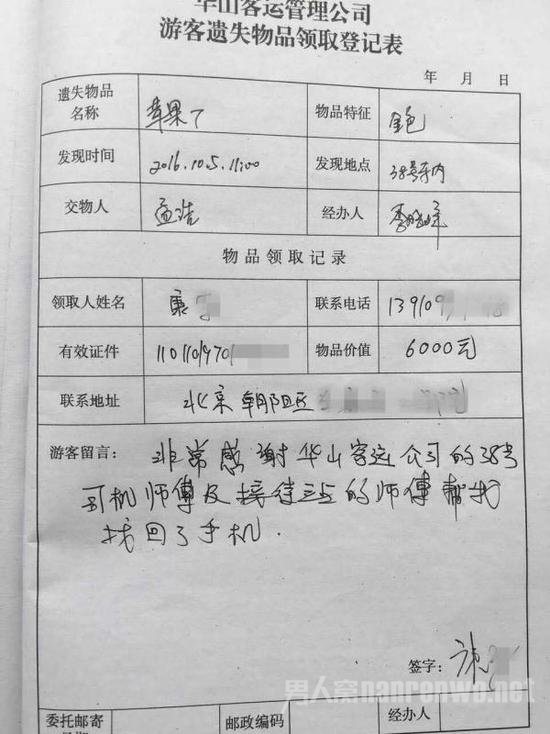 华山客运管理公司
游客遗失物品领取登记表
年 月 日
遗失物品名称 苹果7 物品特征 金色
发现时间 2016.10.5.11:00 发现地点 38号车内
交物人 孟浩 经办人 李
物品领取记录
领取人姓名 康 联系电话 13910
有效证件 110110970 物品价值 6000元
联系地址 北京朝阳区
游客留言： 非常感谢华山客运公司的38号
司机师傅及接待三点的师傅帮我
找回了手机.
签字： 康
男人窝nanrenwo.net
委托邮寄 邮政编码 经办人